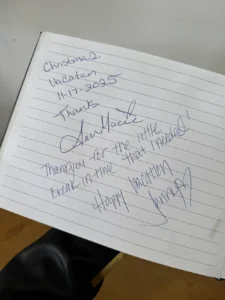 Christmas
Vacation
11-17-2025
Thanks
Thank you for the little
break in time that I needed!
Happy Vacation